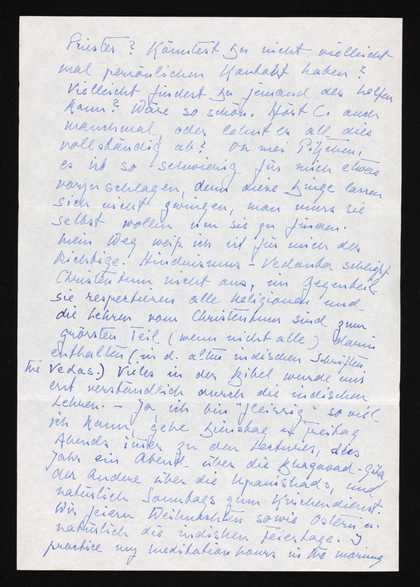 Priester? Könntest Du nicht vielleicht
mal persönlichen Kontakt haben?
Vielleicht findest Du jemand der helfen
kann? Wäre so schön. Hört C. auch
manchmal, oder lehnt er all dies
vollständig ab? Oh mei Pitzitm,
es ist so schwierig für mich etwas
vorzuschlagen, denn diese Dinge lassen
sich nicht zwingen, man muss sie
selbst wollen um sie zu finden.
Mein Weg weiß ich ist für mich der
Richtige. Hinduismus - Vedanta schließt
Christentum nicht aus, im Gegenteil
sie respektieren alle Religionen und
die Lehren vom Christentum sind zum
grössten Teil (wenn nicht alle) darin
enthalten (in d. alten indischen Schriften
the Vedas.) Vieles in der Bibel wurde mir
erst verständlich durch die indischen
Lehren. - Ja, ich bin "fleissig" so viel
ich kann, gehe Dienstag u. Freitag
Abends immer zu den Lectures, dies
Jahr ein Abend über die Bhagavad-Gita
der andere über die Upanishads, und
natürlich Sonntags zum Kirchendienst.
Wir feiern Weihnachten sowie Ostern u.
natürlich die indischen Feiertage. I
practice my meditation hours in the morning